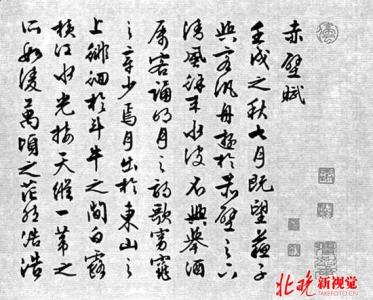 赤壁賦
壬戌之秋七月既望蘇子
與客汎舟遊於赤壁之下
清風徐來水波不興舉酒
屬客誦明月之詩歌窈窕
之章少焉月出於東山之
上徘徊於斗牛之間白露
橫江水光接天縱一葦之
所如凌萬頃之茫然浩浩
北晚新视觉
TAKEFOTO.CN